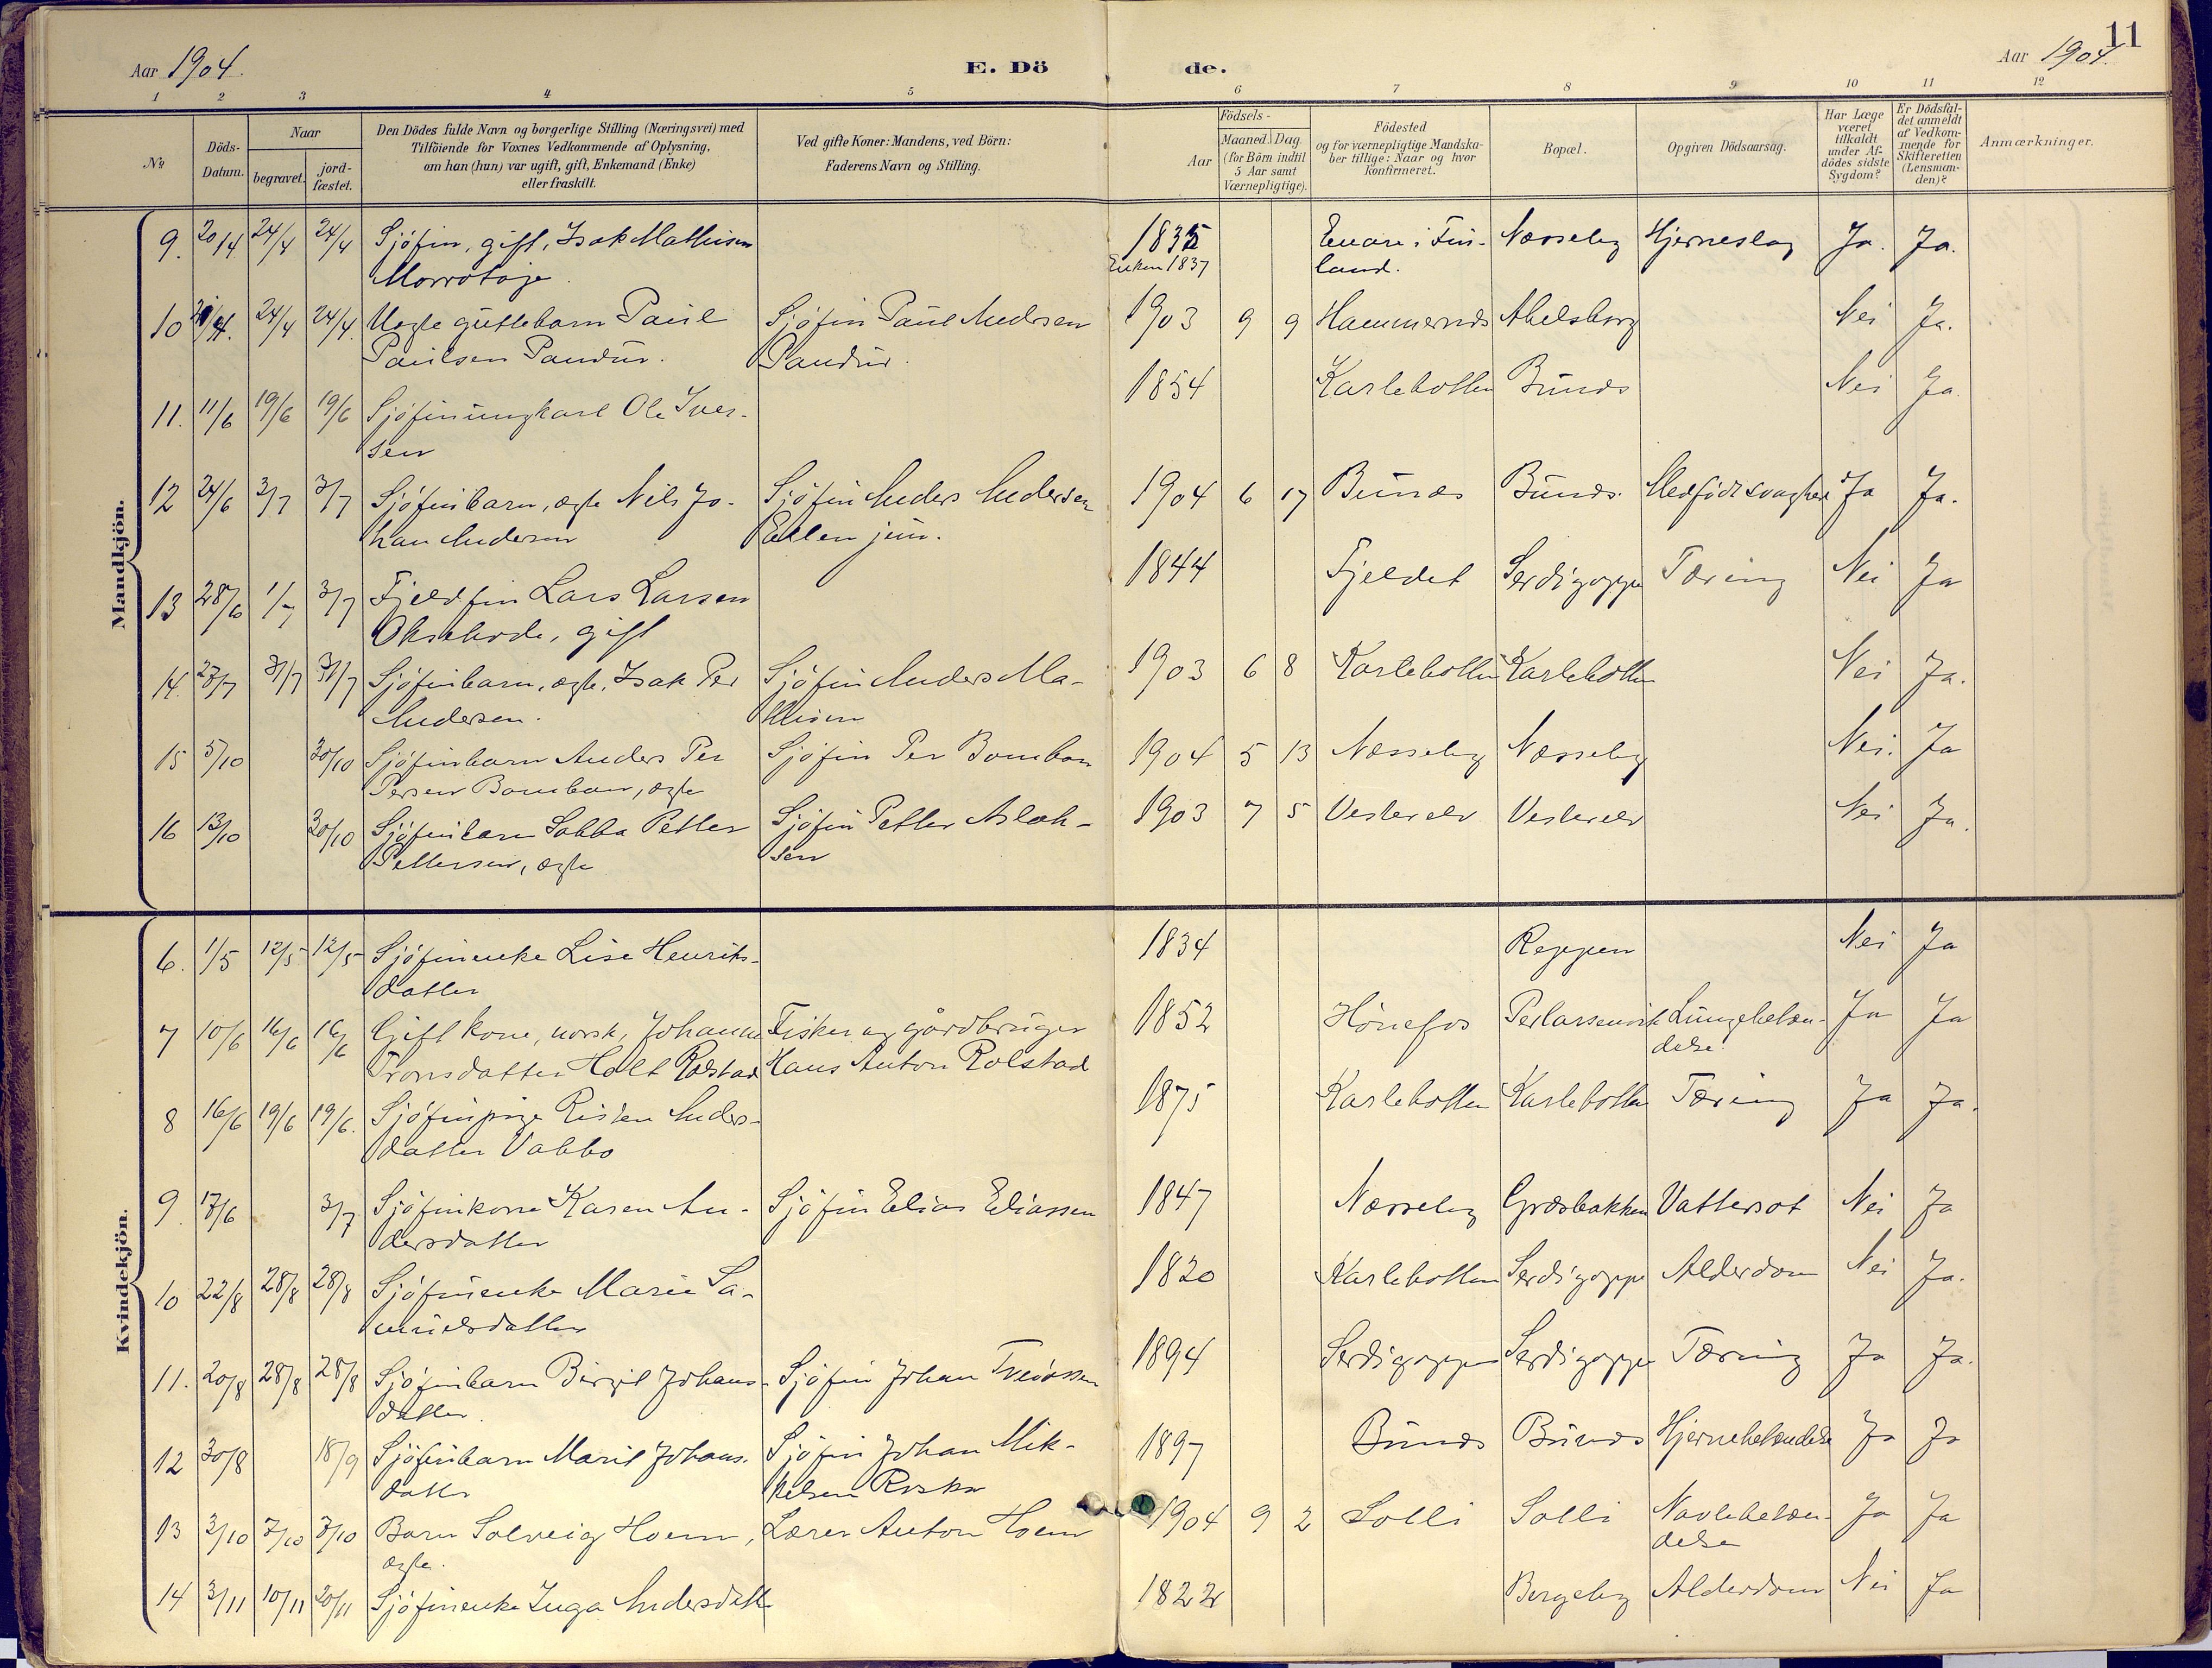 Aar 1904.
E. Döde.
Aar 1904.
11
1 2 3 4 5 6 7 8 9 10 11 12
No
Döds-Datum.
Naar
begravet.
jordfæstet.
Den Dödes fulde Navn og borgerlige Stilling (Næringsvei) med
Tilföiende for Voxnes Vedkommende af Oplysning,
om han (hun) var ugift, gift, Enkemand (Enke)
eller fraskilt.
Ved gifte Koner: Mandens, ved Börn:
Faderens Navn og Stilling.
Födsels-
Aar
Maaned. Dag.
(for Börn indtil
5 Aar samt
Værnepligtige).
Födested
og for værnepligtige Mandska-
ber tillige: Naar og hvor
konfirmeret.
Bopæl.
Opgiven Dödsaarsag.
Har Læge
været
tilkaldt
under Af-
dödes sidste
Sygdom?
Er Dödsfal-
det anmeldt
af Vedkom-
mende for
Skifteretten
(Lensman-
den)?
Anmærkninger.
Mandkjön.
9. 20/4 24/4 24/4 Sjöfin, gift, Isak Mathisen 1835 Enare i Fin- Næsseby Hjerneslag Ja. Ja.
Morrotaje. Enken 1837 land.
10 24/4 24/4. Uægte guttebarn Paul Sjöfin Paul Andersen 1903 9 9 Hammernes Abelsborg Nei Ja.
Paulsen Pandur. Pandur.
11. 11/6 19/6 19/6 Sjöfinungkarl Ole Iver- 1854 Karlebotten Bunes Nei Ja
sen
12 24/6 3/7 3/7 Sjöfinbarn, ægte Nils Jo- Sjöfin Anders Andersen 1904 6 17 Bunes Bunes. Medfödt svaghed Ja Ja.
han Andersen Eellen jun.
13 28/6 1/7 3/7 Fjeldfin Lars Larsen 1844 Fjeldet Serdigoppe Tæring Nei Ja
gift
14. 23/7 31/7 31/7 Sjöfinbarn, ægte, Isak Per Sjöfin Anders Ma- 1903 6 8 Karlebotten Karlebotten Nei Ja.
Andersen. thisen
15 5/10 30/10 Sjöfinbarn Anders Per Sjöfin Per Bomban 1904 5 13 Næsseby Næsseby Nei. Ja
Persen Bomban, ægte
16 13/10 30/10 Sjöfinbarn Sabba Petter Sjöfin Petter Aslak- 1903 7 5 Vesterelv Vesterelv Nei Ja.
Pettersen, ægte sen
Kvindekjön.
6. 1/5 12/5 12/5 Sjöfinenke Lise Henriks- 1834 Reppen Nei Ja
datter
7 10/6 16/6 16/6 Gift kone, norsk, Johanne Fisker og gårdbruger 1852 Hönefos Perlarsenvik Lungebetæn- Ja Ja
Tronsdatter Holt Rolstad Hans Anton Rolstad delse.
8 16/6 19/6 19/6. Sjöfinpige Risten Anders- 1875 Karlebotten Karlebotten Tæring Ja Ja.
datter Vabbo
9. 17/6 3/7 Sjöfinkone Karen An- Sjöfin Elias Eliassen 1847 Næsseby Græsbakken Vattersot Nei Ja
dersdatter
10 22/8 28/8 28/8 Sjöfinenke Marie Sa- 1820 Karlebotten Serdigoppe Alderdom Nei Ja.
muelsdatter
11. 20/8 28/8 28/8 Sjöfinbarn Birgit Johans- Sjöfin Johan 1894 Serdigoppe Serdigoppe Tæring Ja Ja.
datter.
12 30/8 18/9 Sjöfinbarn Marit Johans- Sjöfin Johan Mik- 1897 Bunes Bunes Hjernebetændelse Ja Ja
datter kelsen Roska
13 3/10 7/10 7/10 Barn Solveig Hoem, Lærer Anton Hoem 1904 9 2 Solli Solli Navlebetæn- Ja Ja
ægte. delse
14 3/11 10/11 20/11 Sjöfinenke Inga Andersdatt. 1822 Bergeby Alderdom Nei Ja